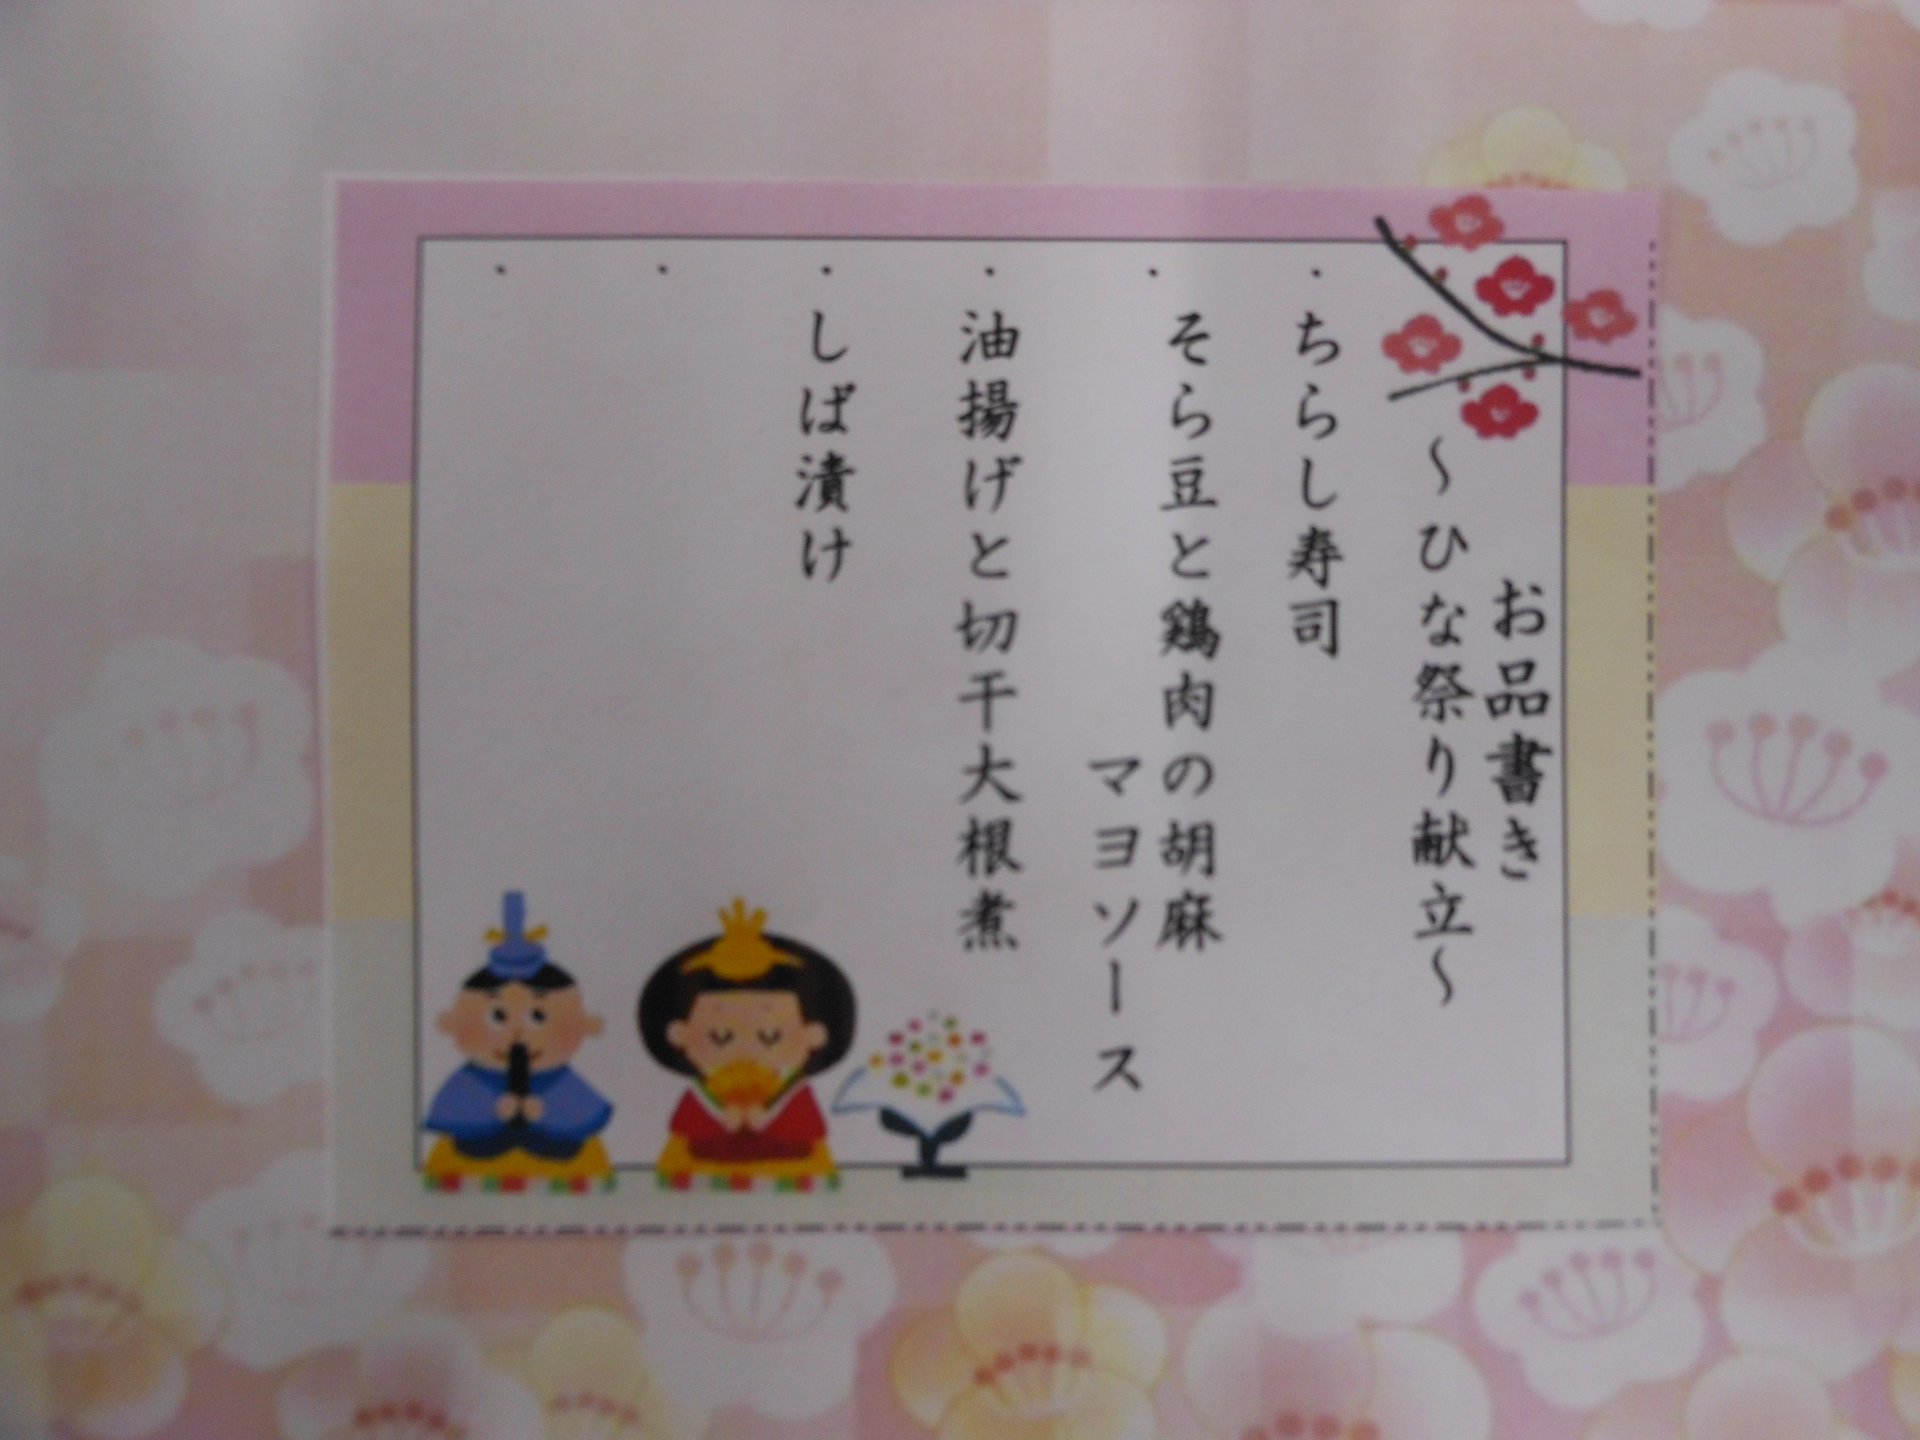 お品書き
～ひな祭り献立～
・ちらし寿司
・そら豆と鶏肉の胡麻
マヨソース
・油揚げと切干大根煮
・しば漬け
・
・